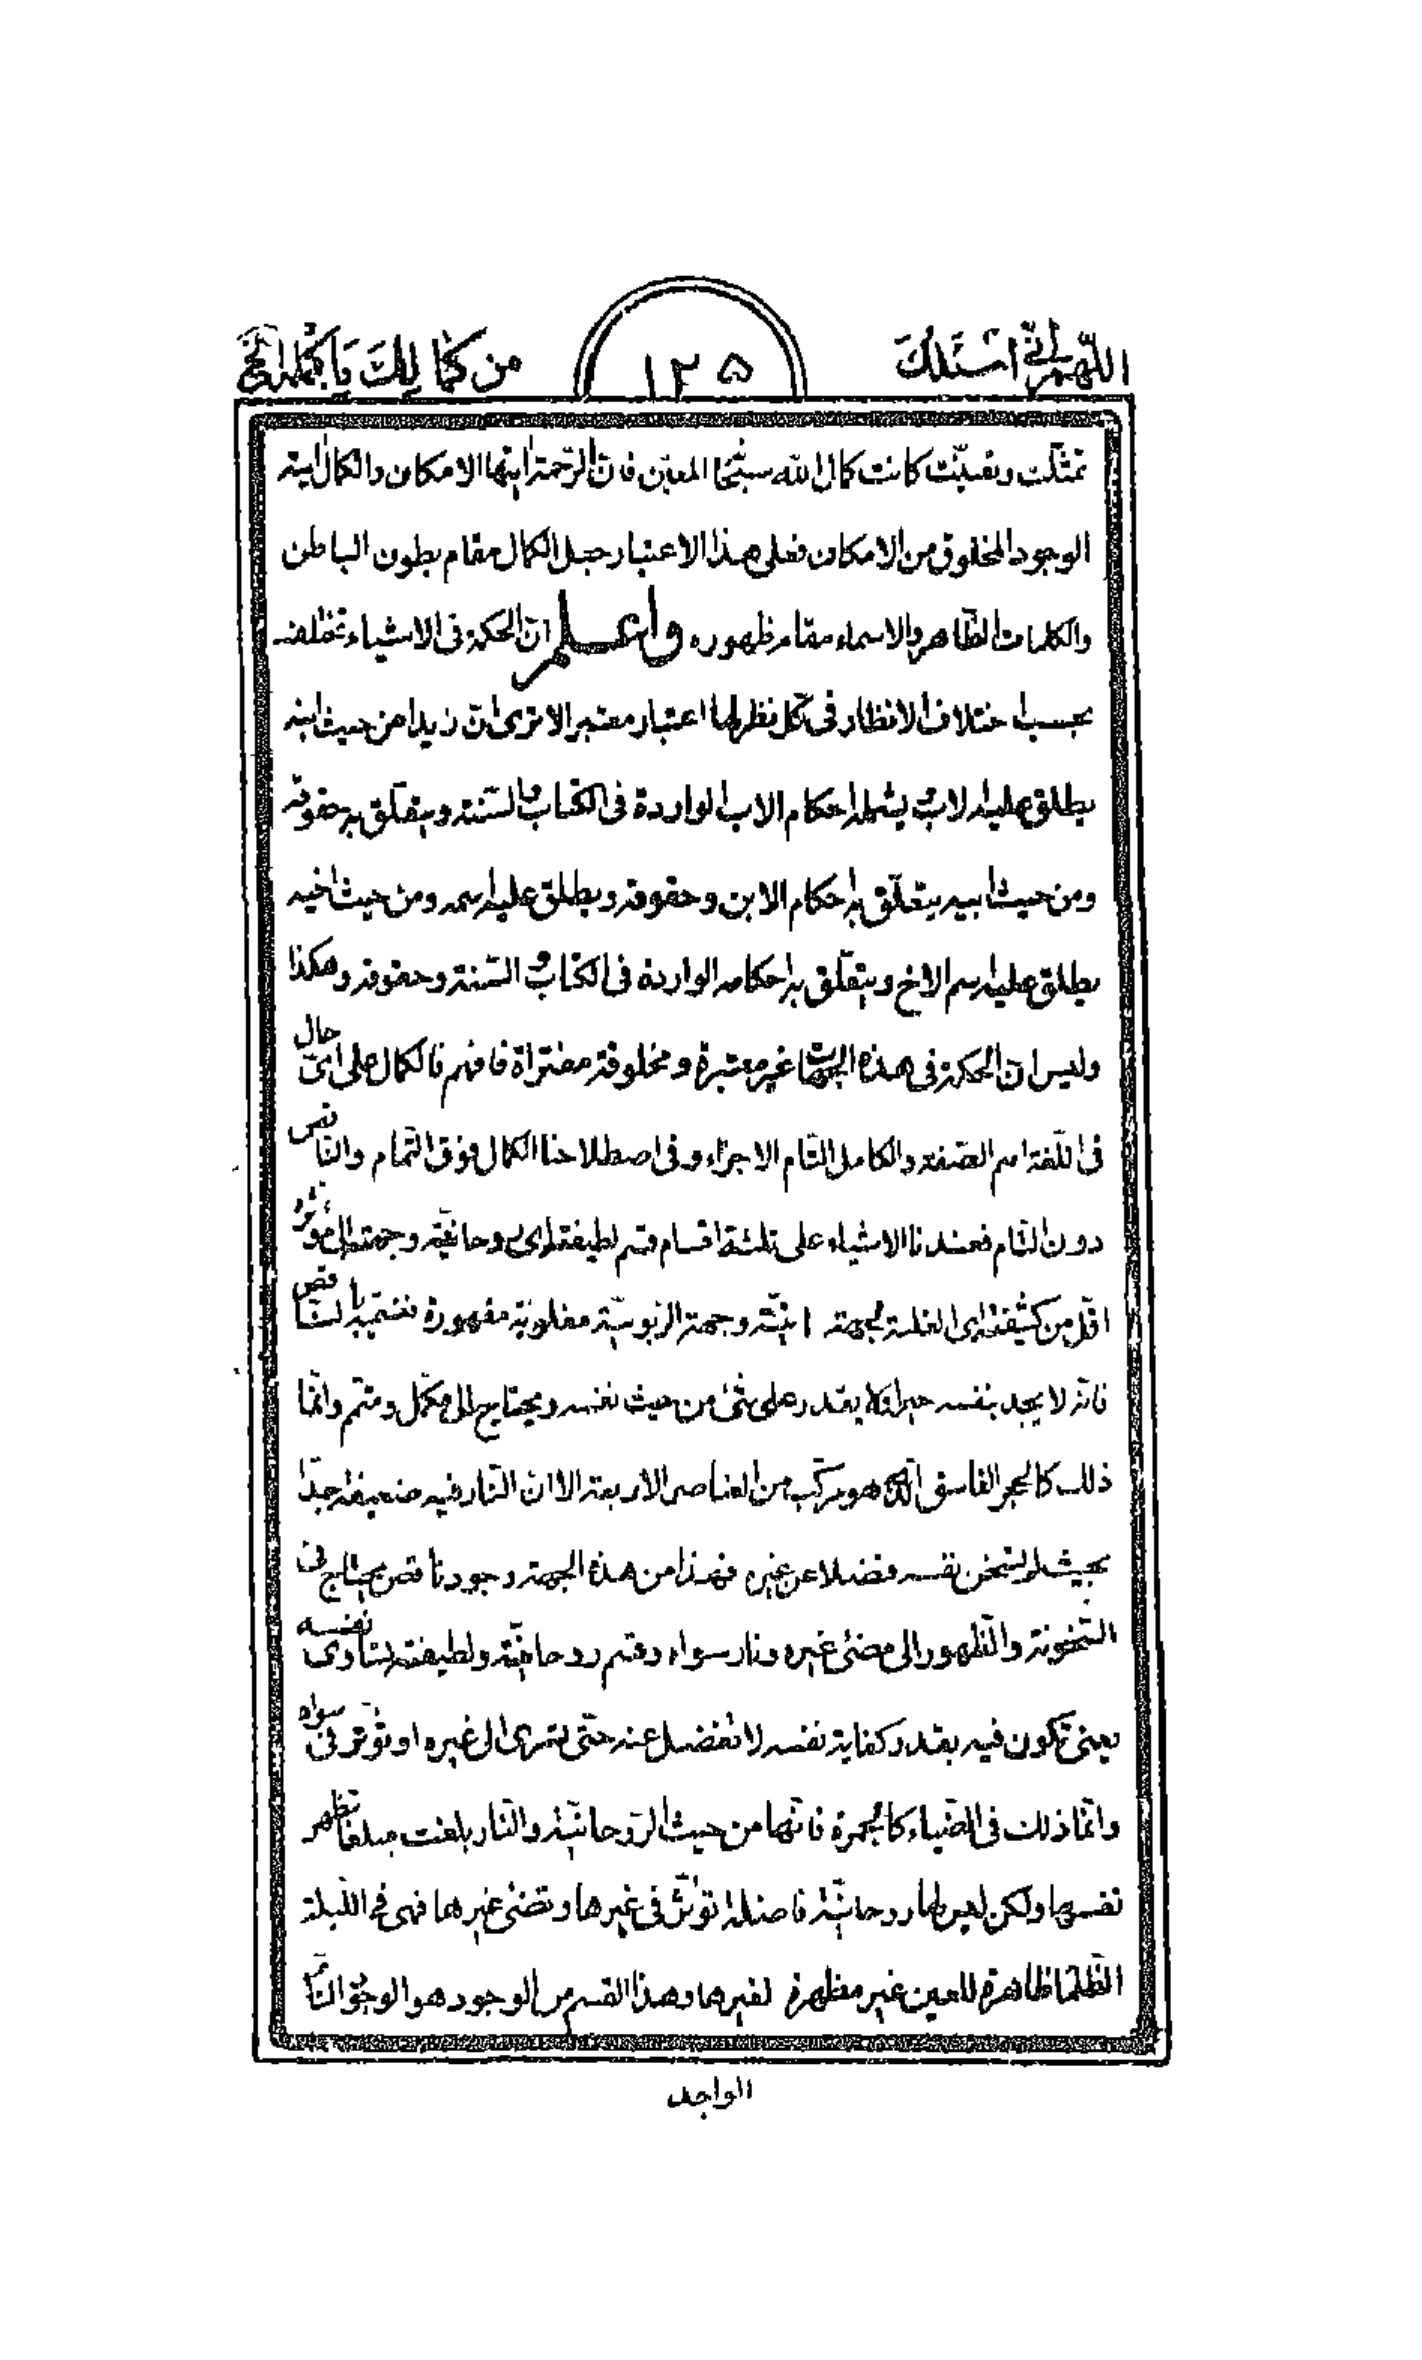 اللّهم انّى اسئلك ١٢۵ من كمالك باكمله الخ
تمثّلت وتعيّنت كانت كمال اللّه سبحانه المعيّن فان الرّحمة ايتها الامكان والكمال ايته
الوجود المخلوق من الامكان فعلى هذا الاعتبار حبل الكمال مقام بطون الباطن
والكلمات الظّاهر والاسماء مقام ظهوره واعلم انّ الحكمة فى الاشياء تختلف
بحسب اختلاف الانظار فى كلّ نظر لها اعتبار معتبر الا ترى انّ زيدا من حيث ابنه
يطلق عليه لاب و يشمله احكام الاب الواردة فى الكتاب والسّنة ويتعلّق به حقوقه
ومن حيث ابيه يتعلّق به احكام الابن وحقوقه ويطلق عليه اسمه ومن حيث اخيه
يطلق عليه اسم الاخ ويتعلّق به احكامه الواردة فى الكتاب و السّنة وحقوقه وهكذا
وليس ان الحكمة فى هذه الجهات غير معتبرة و مخلوقة مفتراة فافهم فالكمال على اىّ حال
فى اللّغة اسم الصّفة والكامل التّام الاجزاء وفى اصطلاحنا الكمال فوق التّمام والنّاقص
دون التّام فعندنا الاشياء على ثلثة اقسام قسم لطيفته اى روحانيّته وجهته الى مؤثره
اقلّ من كثيفته اى الغلبة لجهته انيّته وجهة الربوبيّة مغلوبة مقهورة فنسمّيه بالنّاقص
فانّه لا يجد بنفسه خيرا ولا يقدر على شئ من حيث نفسه ويحتاج الى مكمّل ومتمّم وانّما
ذلك كالحجر الفاسق الّذى هو مركّب من العناصر الاربعة الا ان النّار فيه ضعيفة جدّا
بحيث لم يسخن نفسه فضلا عن غيره فهذا من هذه الجهة وجود ناقص يحتاج فى
السّخونة والظّهور الى مضئ غيره ونار سواه وقسم روحانيّته ولطيفته يساوى نفسه
يعنى تكون فيه بقدر كفاية نفسه لا تفضل عنه حتّى تسرى الى غيره او تؤثر فى سواه
وانّما ذلك فى الضّياء كالجمرة فانّها من حيث الرّوحانيّة والنّار بلغت مبلغا تظهر
نفسها ولكن ليس لها روحانيّة فاضلة تؤثّر فى غيرها وتضئ غيرها فهى فى اللّيلة
الظّلماء ظاهرة للعين غير مظهرة لغيرها وهذا القسم من الوجود هو الوجود التّام
الواجد